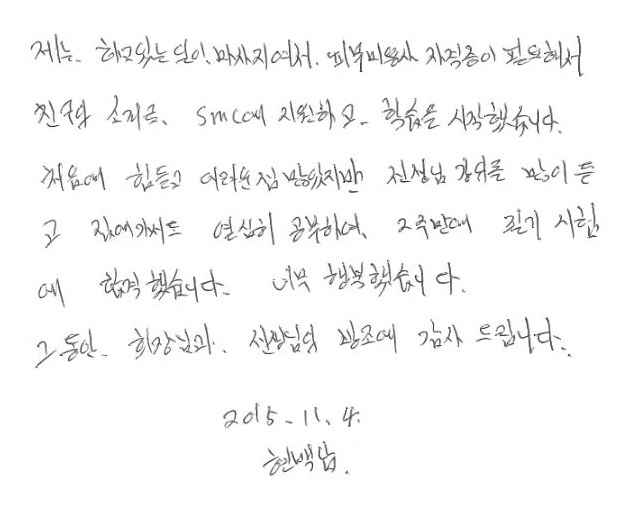 저는. 하고있는 일이 마사지여서. 피부미용사 자격증이 필요해서
친구의 소개로. SMC에 지원하고. 학습을 시작했습니다.
처음에 힘들고 어려운점 많았지만 선생님 강의를 많이 듣
고 집에가서도 열심히 공부하여, 2주만에 필기 시험
에 합격했습니다. 너무 행복했습니다.
그동안. 회장님과. 선생님의 방조에 감사 드립니다.
2015.11.4.